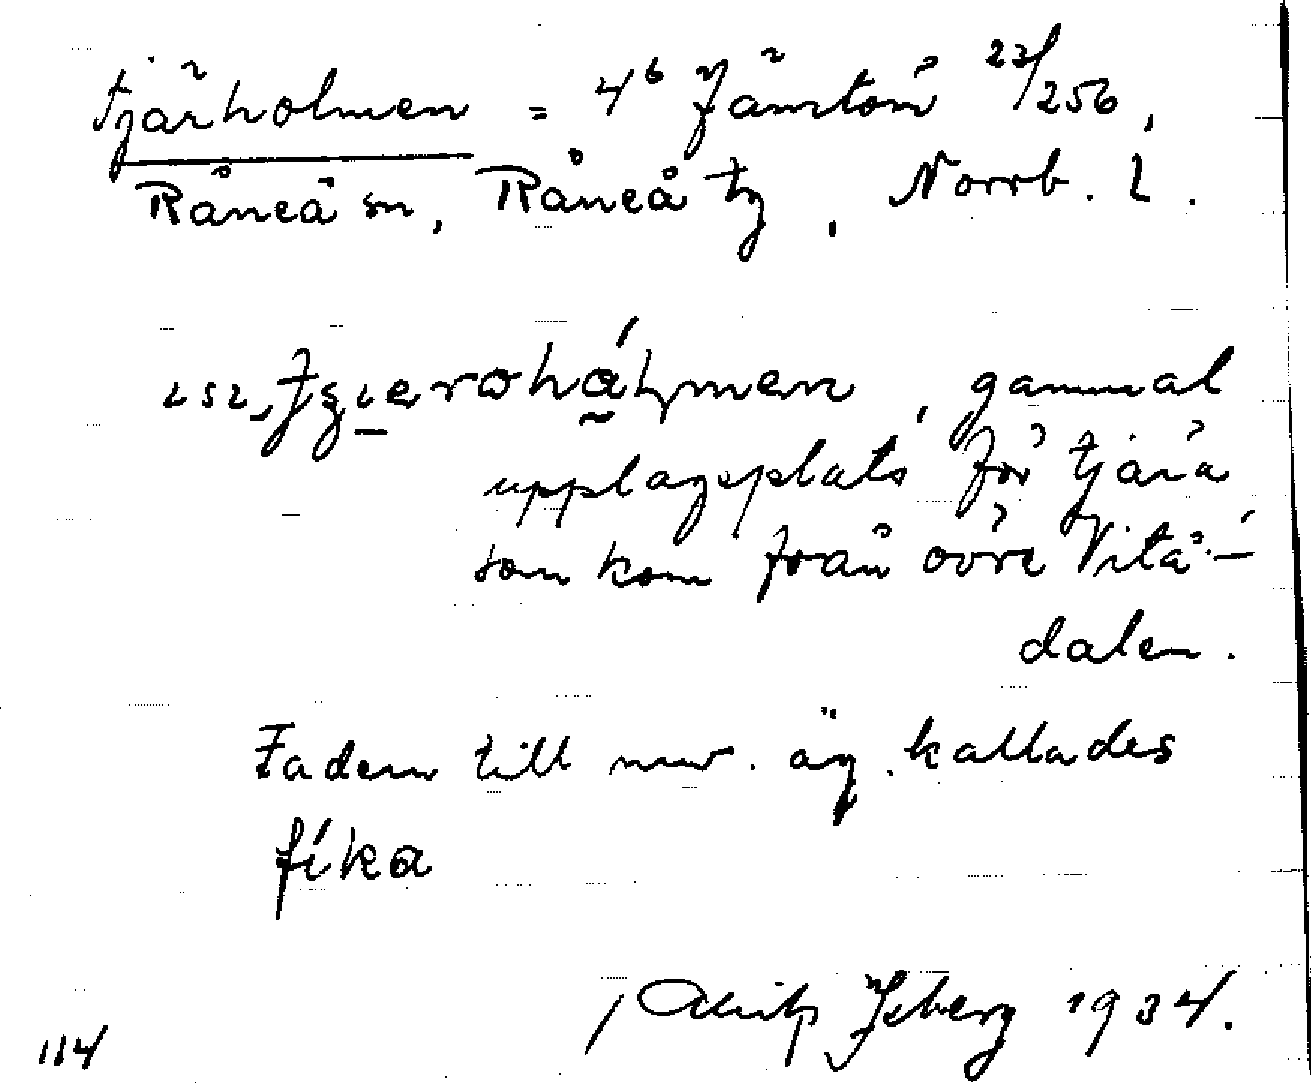 Tjärholmen = 4⁶ Jämtön 22/256,
Råneå sn, Råneå tg, Norrb. L.
gammal
upplagsplats för tjära
som kom från övre Vitå-
dalen.
Fadern till nuv. äg. kallades
fíka
Isberg 1934.
114